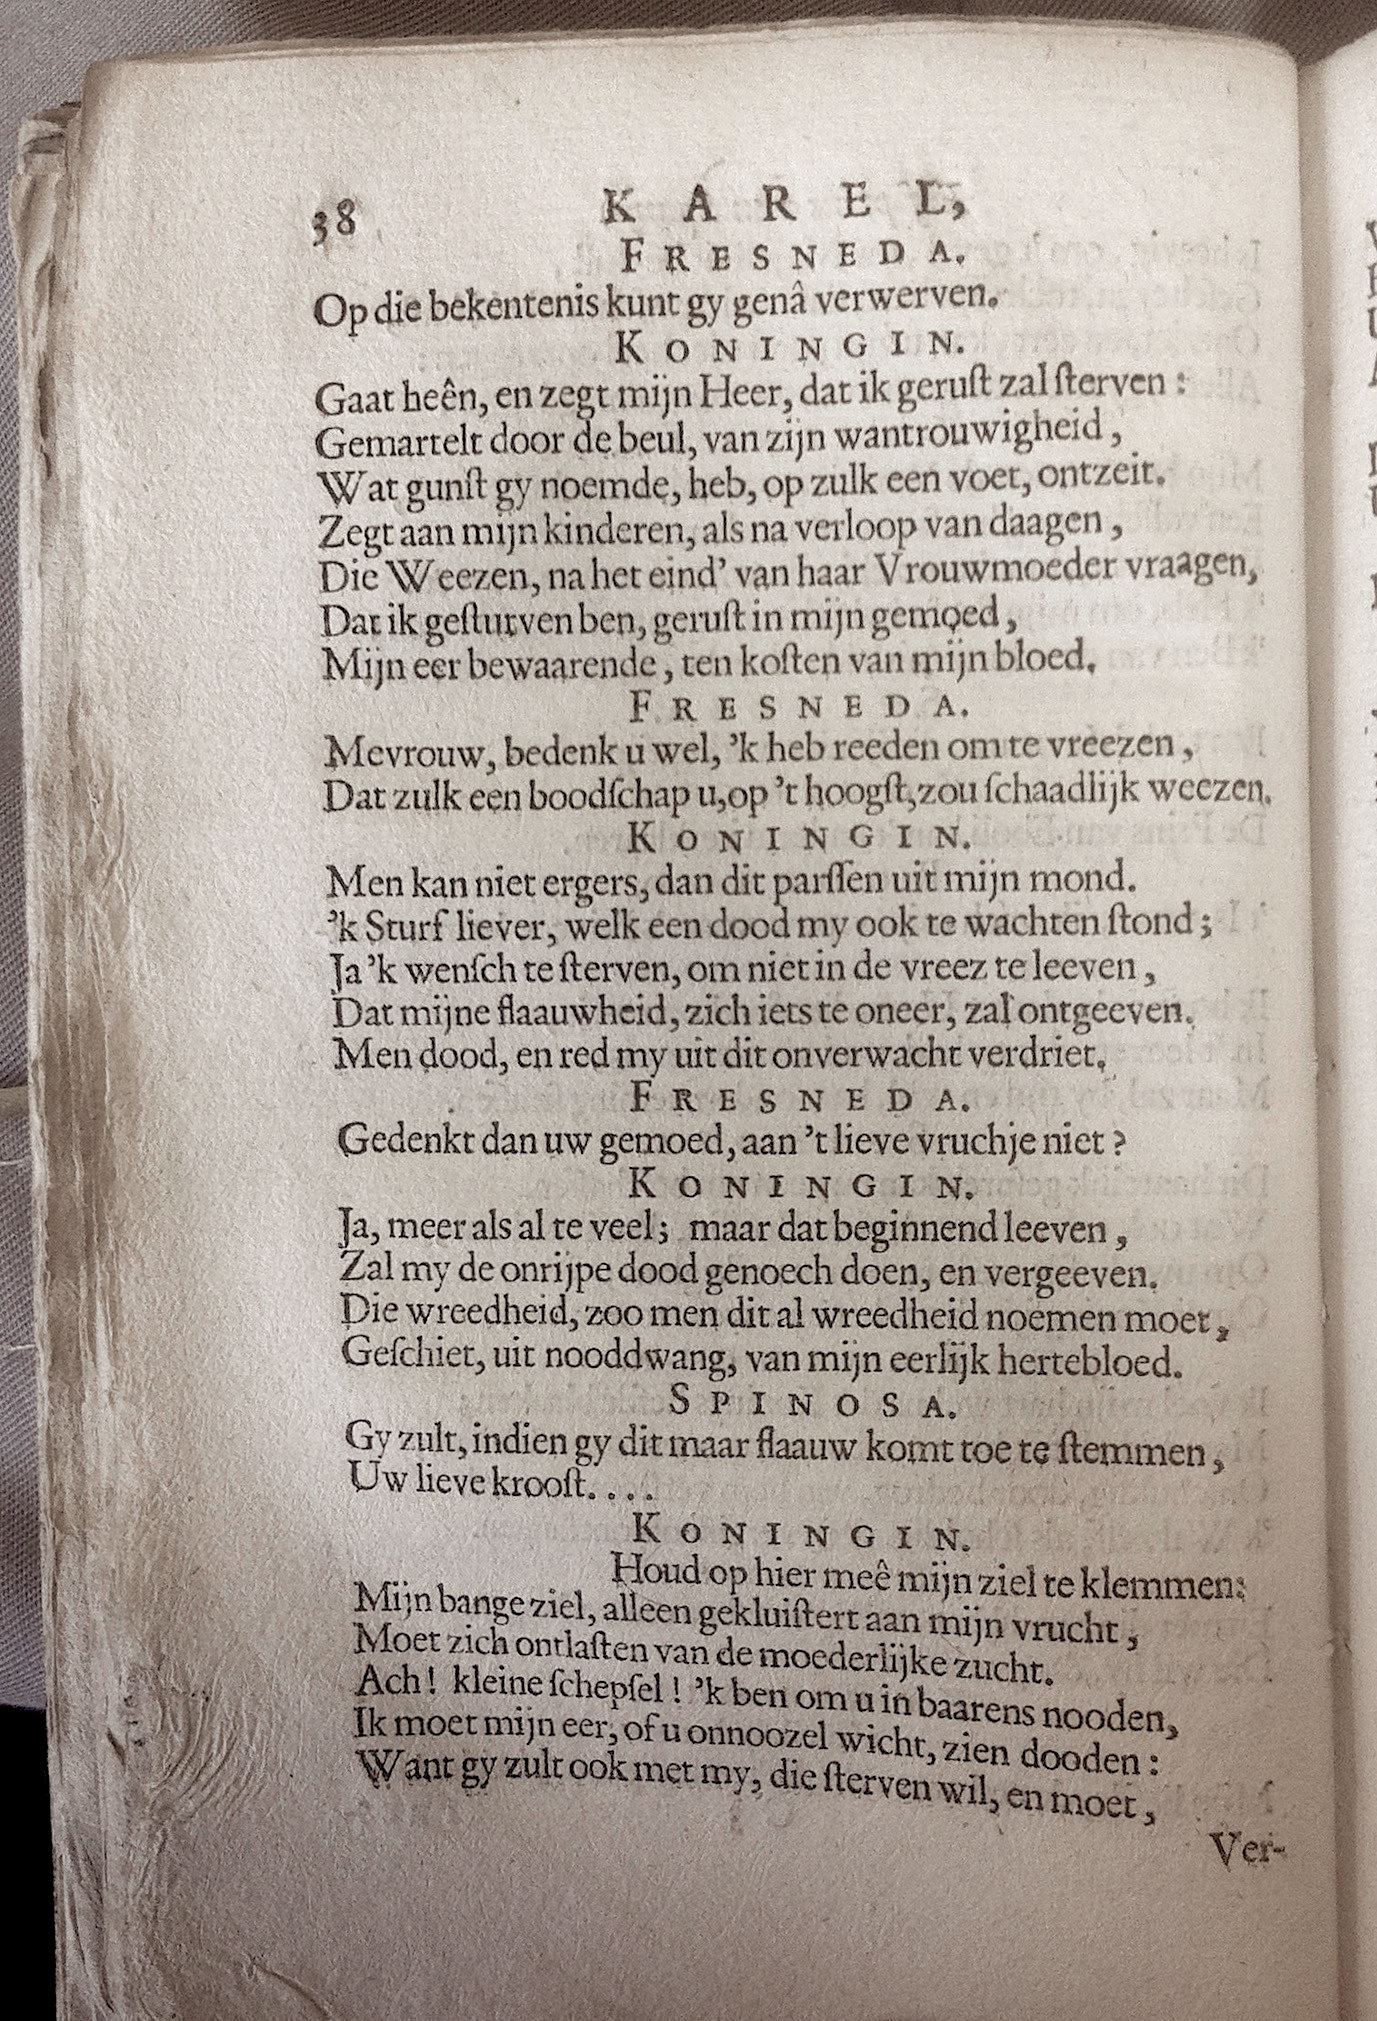 38 KAREL,
FRESNEDA.
Op die bekentenis kunt gy genâ verwerven.
KONINGIN.
Gaat heên, en zegt mijn Heer, dat ik geruſt zal ſterven:
Gemartelt door de beul, van zijn wantrouwigheid,
Wat gunſt gy noemde, heb, op zulk een voet, ontzeit.
Zegt aan mijn kinderen, als na verloop van daagen,
Die Weezen, na het eind' van haar Vrouwmoeder vraagen,
Dat ik geſturven ben, geruſt in mijn gemoed,
Mijn eer bewaarende, ten koſten van mijn bloed.
FRESNEDA.
Mevrouw, bedenk u wel, 'k heb reeden om te vreezen,
Dat zulk een boodſchap u, op 't hoogſt, zou ſchaadlijk weezen.
KONINGIN.
Men kan niet ergers, dan dit parſſen uit mijn mond.
'k Sturf liever, welk een dood my ook te wachten ſtond;
Ja 'k wenſch te ſterven, om niet in de vreez te leeven,
Dat mijne flaauwheid, zich iets te oneer, zal ontgeeven.
Men dood, en red my uit dit onverwacht verdriet.
FRESNEDA.
Gedenkt dan uw gemoed, aan 't lieve vruchje niet?
KONINGIN.
Ja, meer als al te veel; maar dat beginnend leeven,
Zal my de onrijpe dood genoech doen, en vergeeven.
Die wreedheid, zoo men dit al wreedheid noemen moet,
Geſchiet, uit nooddwang, van mijn eerlijk hertebloed.
SPINOSA.
Gy zult, indien gy dit maar flaauw komt toe te ſtemmen,
Uw lieve krooſt. . . .
KONINGIN.
Houd op hier meê mijn ziel te klemmen:
Mijn bange ziel, alleen gekluiſtert aan mijn vrucht,
Moet zich ontlaſten van de moederlijke zucht.
Ach! kleine ſchepſel! 'k ben om u in baarens nooden,
Ik moet mijn eer, of u onnoozel wicht, zien dooden:
Want gy zult ook met my, die ſterven wil, en moet,
Ver-